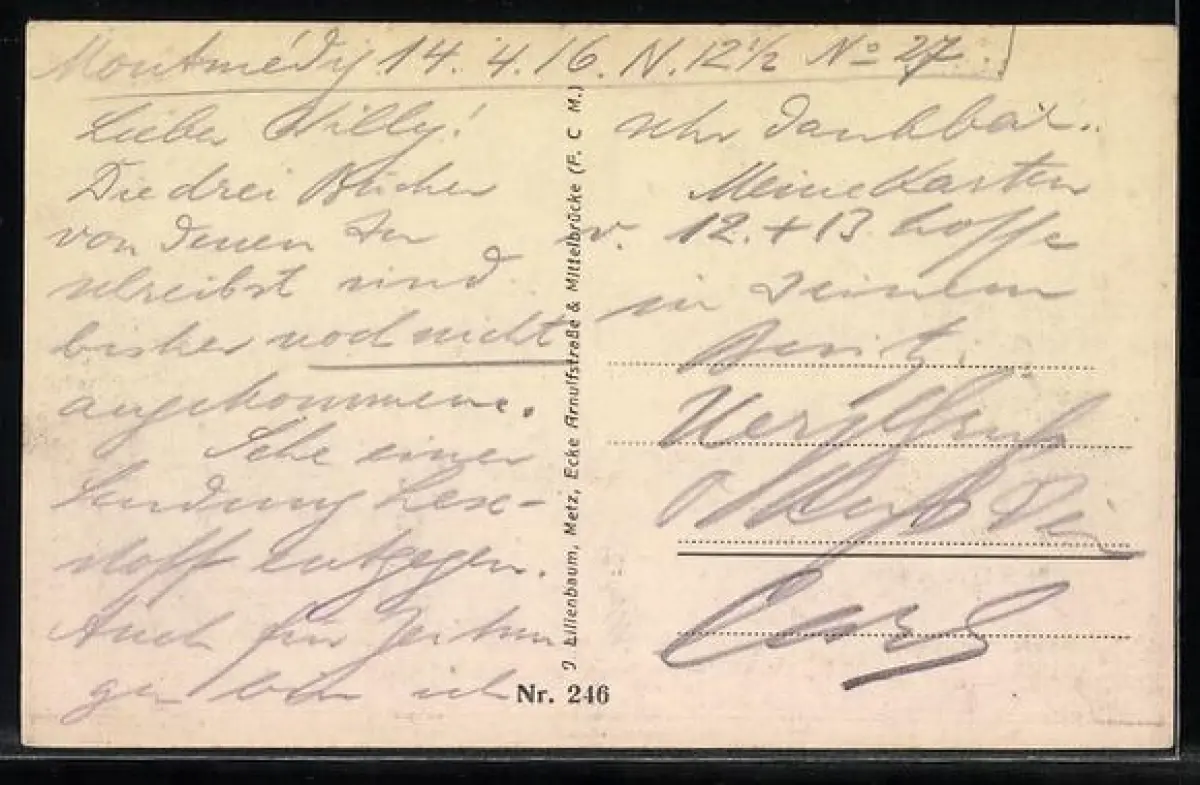 Montmédy 14. 4. 16. N. 12 1/2 No 27.
Lieber Willy!
Die drei Bücher
von denen Du
schreibst sind
bisher noch nicht
angekommen.
Sehe einer
Sendung Lese-
stoff entgegen.
Auch für Zeitun
gen bin ich
sehr dankbar.
Meine Karten
v. 12. + 13. hoffe
in Deinem
Besitz.
Herzlichst
Dein
Carl
J. Lilienbaum, Metz, Ecke Arnulfstraße & Mittelbrücke (F. C. M.)
Nr. 246